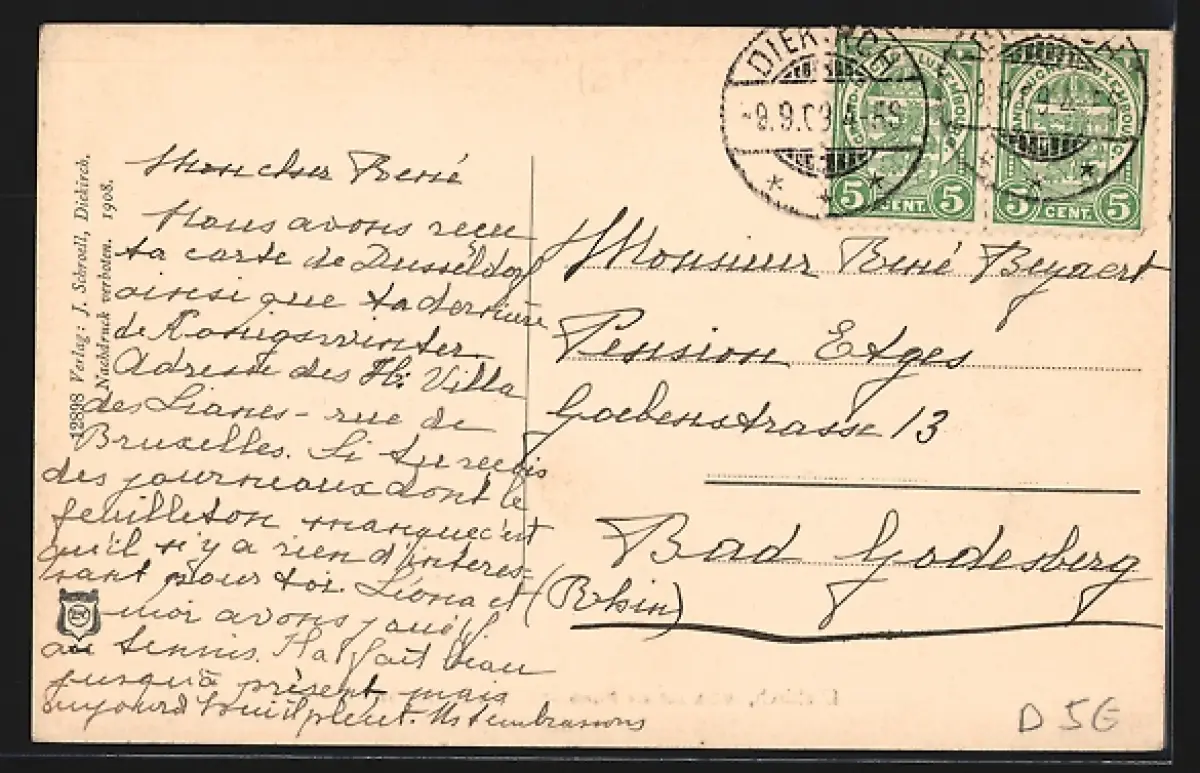 12898 Verlag: J. Schroell, Diekirch.
Nachdruck verboten. 1908.
Mon cher René
Nous avons reçu
ta carte de Dusseldorf
ainsi que ta dernière
de Konigswinter.
Adresse des H: Villa
des Lianes - rue de
Bruxelles. Si tu reçois
des journaux dont le
feuilleton manque c'est
qu'il n'y a rien d'interes-
sant pour toi. Léona et
moi avons joué
au tennis. Il a fait beau
jusqu'à présent mais
aujourd'hui il pleut. Ns t'embrassons
DIEKIRCH
-9.9.09 4-5S
GRAND-DUCHÉ DE LUXEMBOURG.
5 CENT. 5
GRAND-DUCHÉ DE LUXEMBOURG.
5 CENT. 5
Monsieur René Beyaert
Pension Etges
Goebenstrasse 13
Bad Godesberg
(Rhin)
D 5E